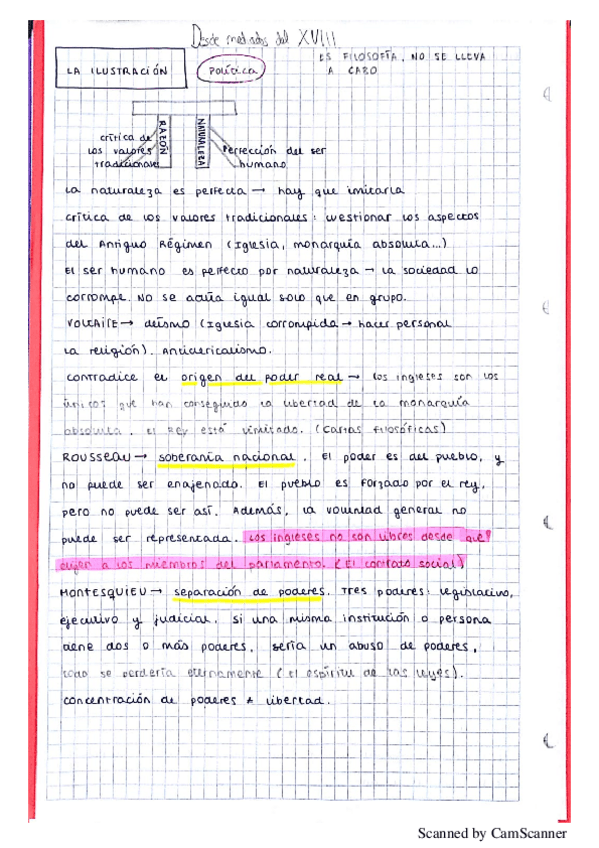 Desde mediados del XVIII
ES FILOSOFÍA, NO SE LLEVA
LA ILUSTRACIÓN
POLÍTICA
A CABO
RAZÓN
NATURALEZA
crítica de
los valores
tradicionales
Perfección del ser
humano
La naturaleza es perfecta → hay que imitarla
crítica de los valores tradicionales: cuestionar los aspectos
del Antiguo Régimen (Iglesia, monarquía absoluta...)
El ser humano es perfecto por naturaleza → la sociedad lo
corrompe. No se actúa igual solo que en grupo.
VOLTAIRE → deísmo (Iglesia corrompida → hacer personal
la religión). Anticlericalismo.
contradice el origen del poder real → los ingleses son los
únicos que han conseguido la libertad de la monarquía
absoluta. El Rey está limitado. (Cartas filosóficas)
ROUSSEAU → soberanía nacional. El poder es del pueblo, y
no puede ser enajenado. El pueblo es forzado por el rey,
pero no puede ser así. Además, la voluntad general no
puede ser representada. Los ingleses no son libres desde que
elijen a los miembros del parlamento. (El contrato social)
MONTESQUIEU → separación de poderes. Tres poderes: legislativo,
ejecutivo y judicial. Si una misma institución o persona
tiene dos o más poderes, sería un abuso de poderes,
todo se perdería eternamente (El espíritu de las leyes).
concentración de poderes ≠ libertad.
Scanned by CamScanner